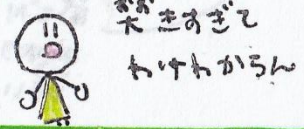 大きすぎて
わけわからん